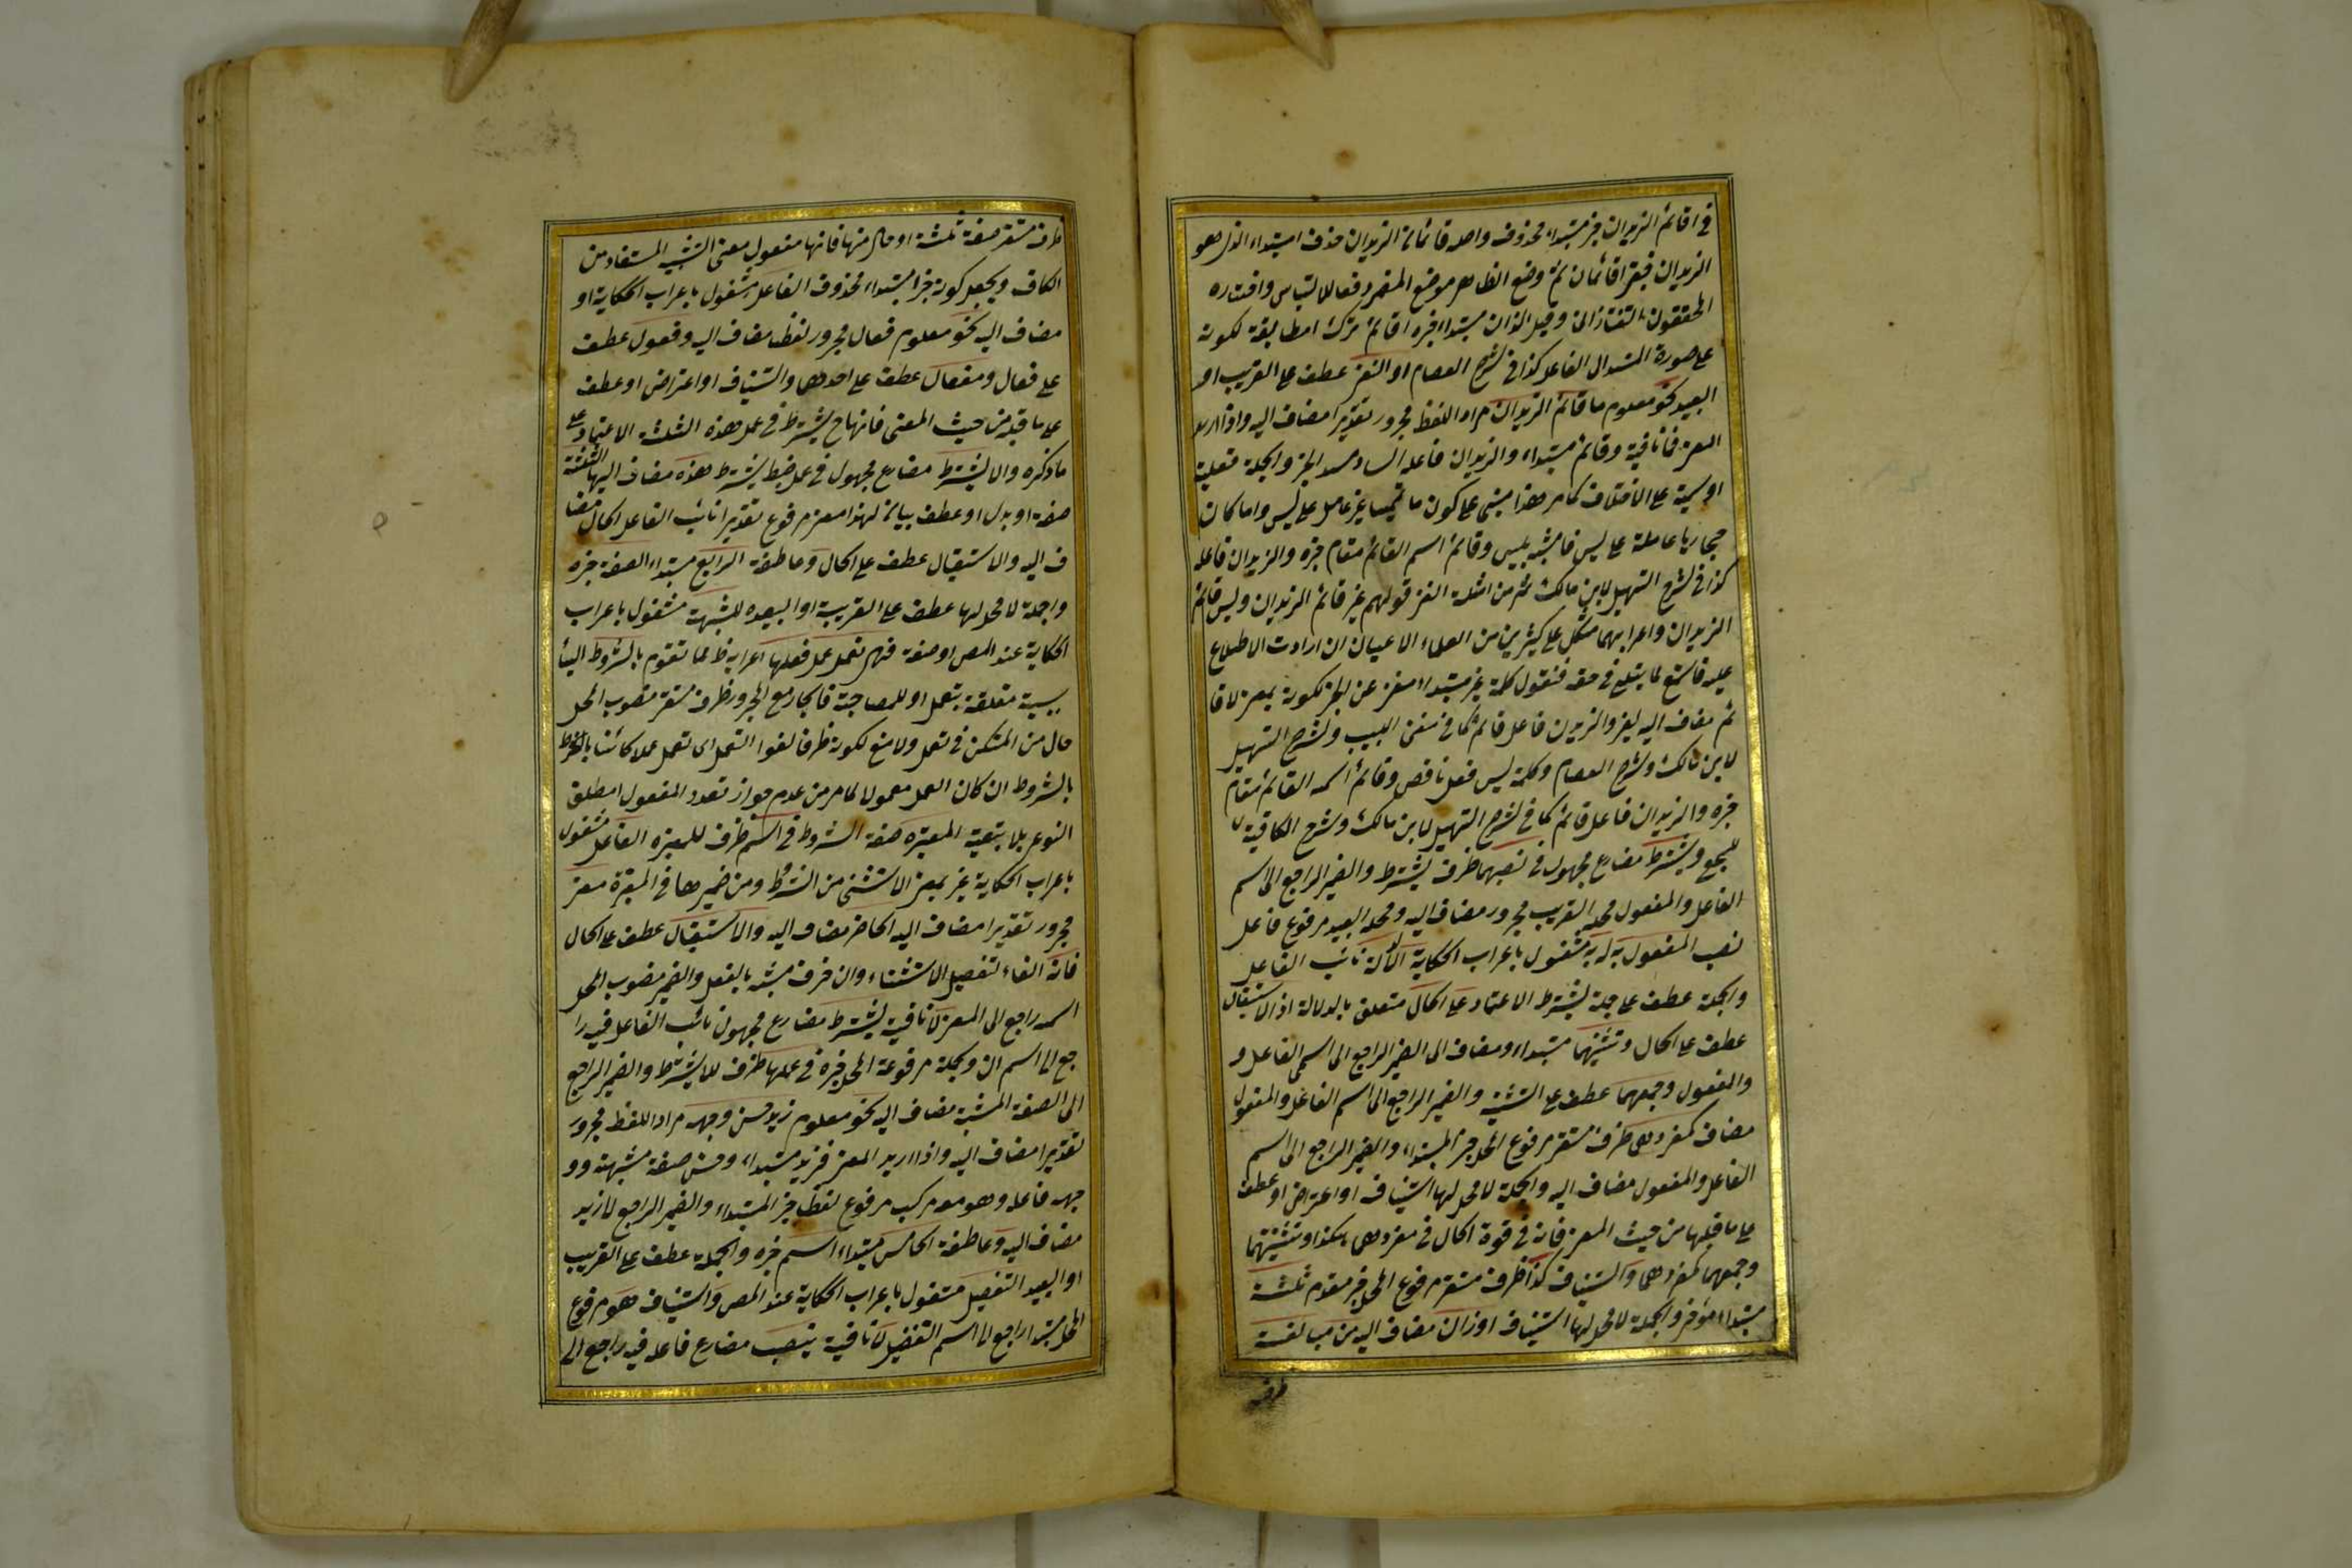 في اقائم الزيدان خبر مبتداء محذوف واصله قائمان الزيدان حذف المبتداء الذى هو
الزيدان فبقى اقائمان ثم وضع الظاهر موضع المضمر دفعا للالتباس واختاره
المحققون التفتازانى وقيل الزيدان مبتداء خبره اقائم ترك المطابقة لكونه
على صورة المسند الى الفاعل كذا في شرح العصام او النفى عطف على القريب او
البعيد نحو معلوم ما قائم الزيدان مراد اللفظ مجرور تقديرا مضاف اليه واذا اريد
المعنى فما نافية وقائم مبتداء والزيدان فاعله الساد مسد الخبر والجملة فعلية
او اسمية على الاختلاف كما مر هذا مبنى على كون ما تميميا غير عامل على ليس واما كان
حجازيا عاملة على ليس فما مشبه بليس وقائم اسم القائم مقام خبره والزيدان فاعله
كذا في شرح التسهيل لابن مالك ثم من امثلة النفى قولهم غير قائم الزيدان وليس قائم
الزيدان واعرابهما مشكل على كثيرين من العلماء الاعيان ان اردت الاطلاع
عليه فاستمع لما يتلى في حقه فنقول كلمة غير مبتداء مغن عن الخبر لكونه بمعنى لا قا
ئم مضاف اليه لغير والزيدان فاعل قائم كما في مغنى اللبيب وشرح التسهيل
لابن مالك وشرح العصام وكلمة ليس فعل ناقص وقائم اسمه القائم مقام
خبره والزيدان فاعل قائم كما في شرح التسهيل لابن مالك وشرح الكافية
ويشترط مضارع مجهول في نصبهما ظرف يشترط والضمير الراجع الى اسم
الفاعل والمفعول محله القريب مجرور مضاف اليه ومحله البعيد مرفوع فاعل
نصب المفعول به مشغول باعراب الحكاية الدلالة نائب الفاعل
والجملة عطف على جملة يشترط الاعتماد على الحال متعلق بالدلالة او الاستقبال
عطف على الحال وتثنيتهما مبتداء ومضاف الى الضمير الراجع الى اسمى الفاعل و
والمفعول وجمعهما عطف على التثنية والضمير الراجع الى اسم الفاعل والمفعول
مضاف كمفردهما ظرف مستقر مرفوع المحل خبر المبتداء والضمير الراجع الى اسم
الفاعل والمفعول مضاف اليه والجملة لا محل لها استيناف او اعتراض او عطف
على ما قبلها من حيث المعنى فانه في قوة الحال في مفردهما هكذا وتثنيتهما
وجمعهما كمفردهما والستيناف كذا ظرف مستقر مرفوع المحل خبر مقدم ثلثة
مبتداء مؤخر والجملة لا محل لها استيناف اوزان مضاف اليه من مبالغة
ظرف
ظرف مستقر صفة ثلثة او حال منها فانها مفعول معنى التشبيه المستفاد من
الكاف ويجعل كونه خبرا مبتداء محذوف الفاعل مشغول باعراب الحكاية او
مضاف اليه نحو معلوم فعال مجرور لفظا مضاف اليه وفعول عطف
على فعال ومفعال عطف على احدهما والستيناف او اعتراض او عطف
على ما قبله من حيث المعنى فانها ح يشترط في عمل هذه الثلثة الاعتماد على
ما ذكره والا يشترط مضارع مجهول في عمل ضبط يشترط هذه مضاف اليها الثلثة
صفة او بدل او عطف بيان لهذا معنى مرفوع تقديرا نائب الفاعل الحال مضا
ف اليه والاستقبال عطف على الحال وعاطفة الرابع مبتداء الصفة خبره
والجملة لا محل لها عطف على القريبة او البعيده المشبهة مشغول باعراب
الحكاية عند المص او صفة فهى تعمل عمل فعلها اعرابه ظ مما تقدم بالشروط البا
سببية متعلقة بتعمل او للمصاحبة فالجار مع المجرور ظرف مستقر منصوب المحل
حال من المستكن في تعمل ولا منع لكونه ظرفا لغوا التعمل اى تعمل عملا كائنا بالشروط
بالشروط ان كان العمل معمولا لما مر من عدم جواز تعدد المفعول المطلق
النوعى بلا تبعية المعتبرة صفة الشروط في اسم ظرف للمعتبرة الفاعل مشغول
باعراب الحكاية غير بمعنى الاستثنى من الشروط ومن ضميرها في المعتبرة معنى
مجرور تقديرا مضاف اليه الحاضر مضاف اليه والاستقبال عطف على الحال
فانه الفاء لتفصيل الاستثناء وان حرف مشبه بالفعل والضمير منصوب المحل
اسمه راجع الى المعنى لا نافية يشترط مضارع مجهول نائب الفاعل فيه را
جع الى اسم ان والجملة مرفوعة المحل خبره في عملها ظرف للا يشترط والضمير الراجع
الى الصفة المشبهة مضاف اليه نحو معلوم زيد حسن وجهه مراد اللفظ مجرور
تقديرا مضاف اليه واذا اريد المعنى فزيد مبتداء وحسن صفة مشبهة وو
جهه فاعله وهو معه مركب مرفوع لفظا خبر المبتداء والضمير الراجع الى زيد
مضاف اليه وعاطفة الخامس مبتداء اسم خبره والجملة عطف على القريب
او البعيد التفضيل مشغول باعراب الحكاية عند المص والستيناف هو مرفوع
المحل مبتدا راجع الى اسم التفضيل لا نافية ينصب مضارع فاعله فيه راجع الى